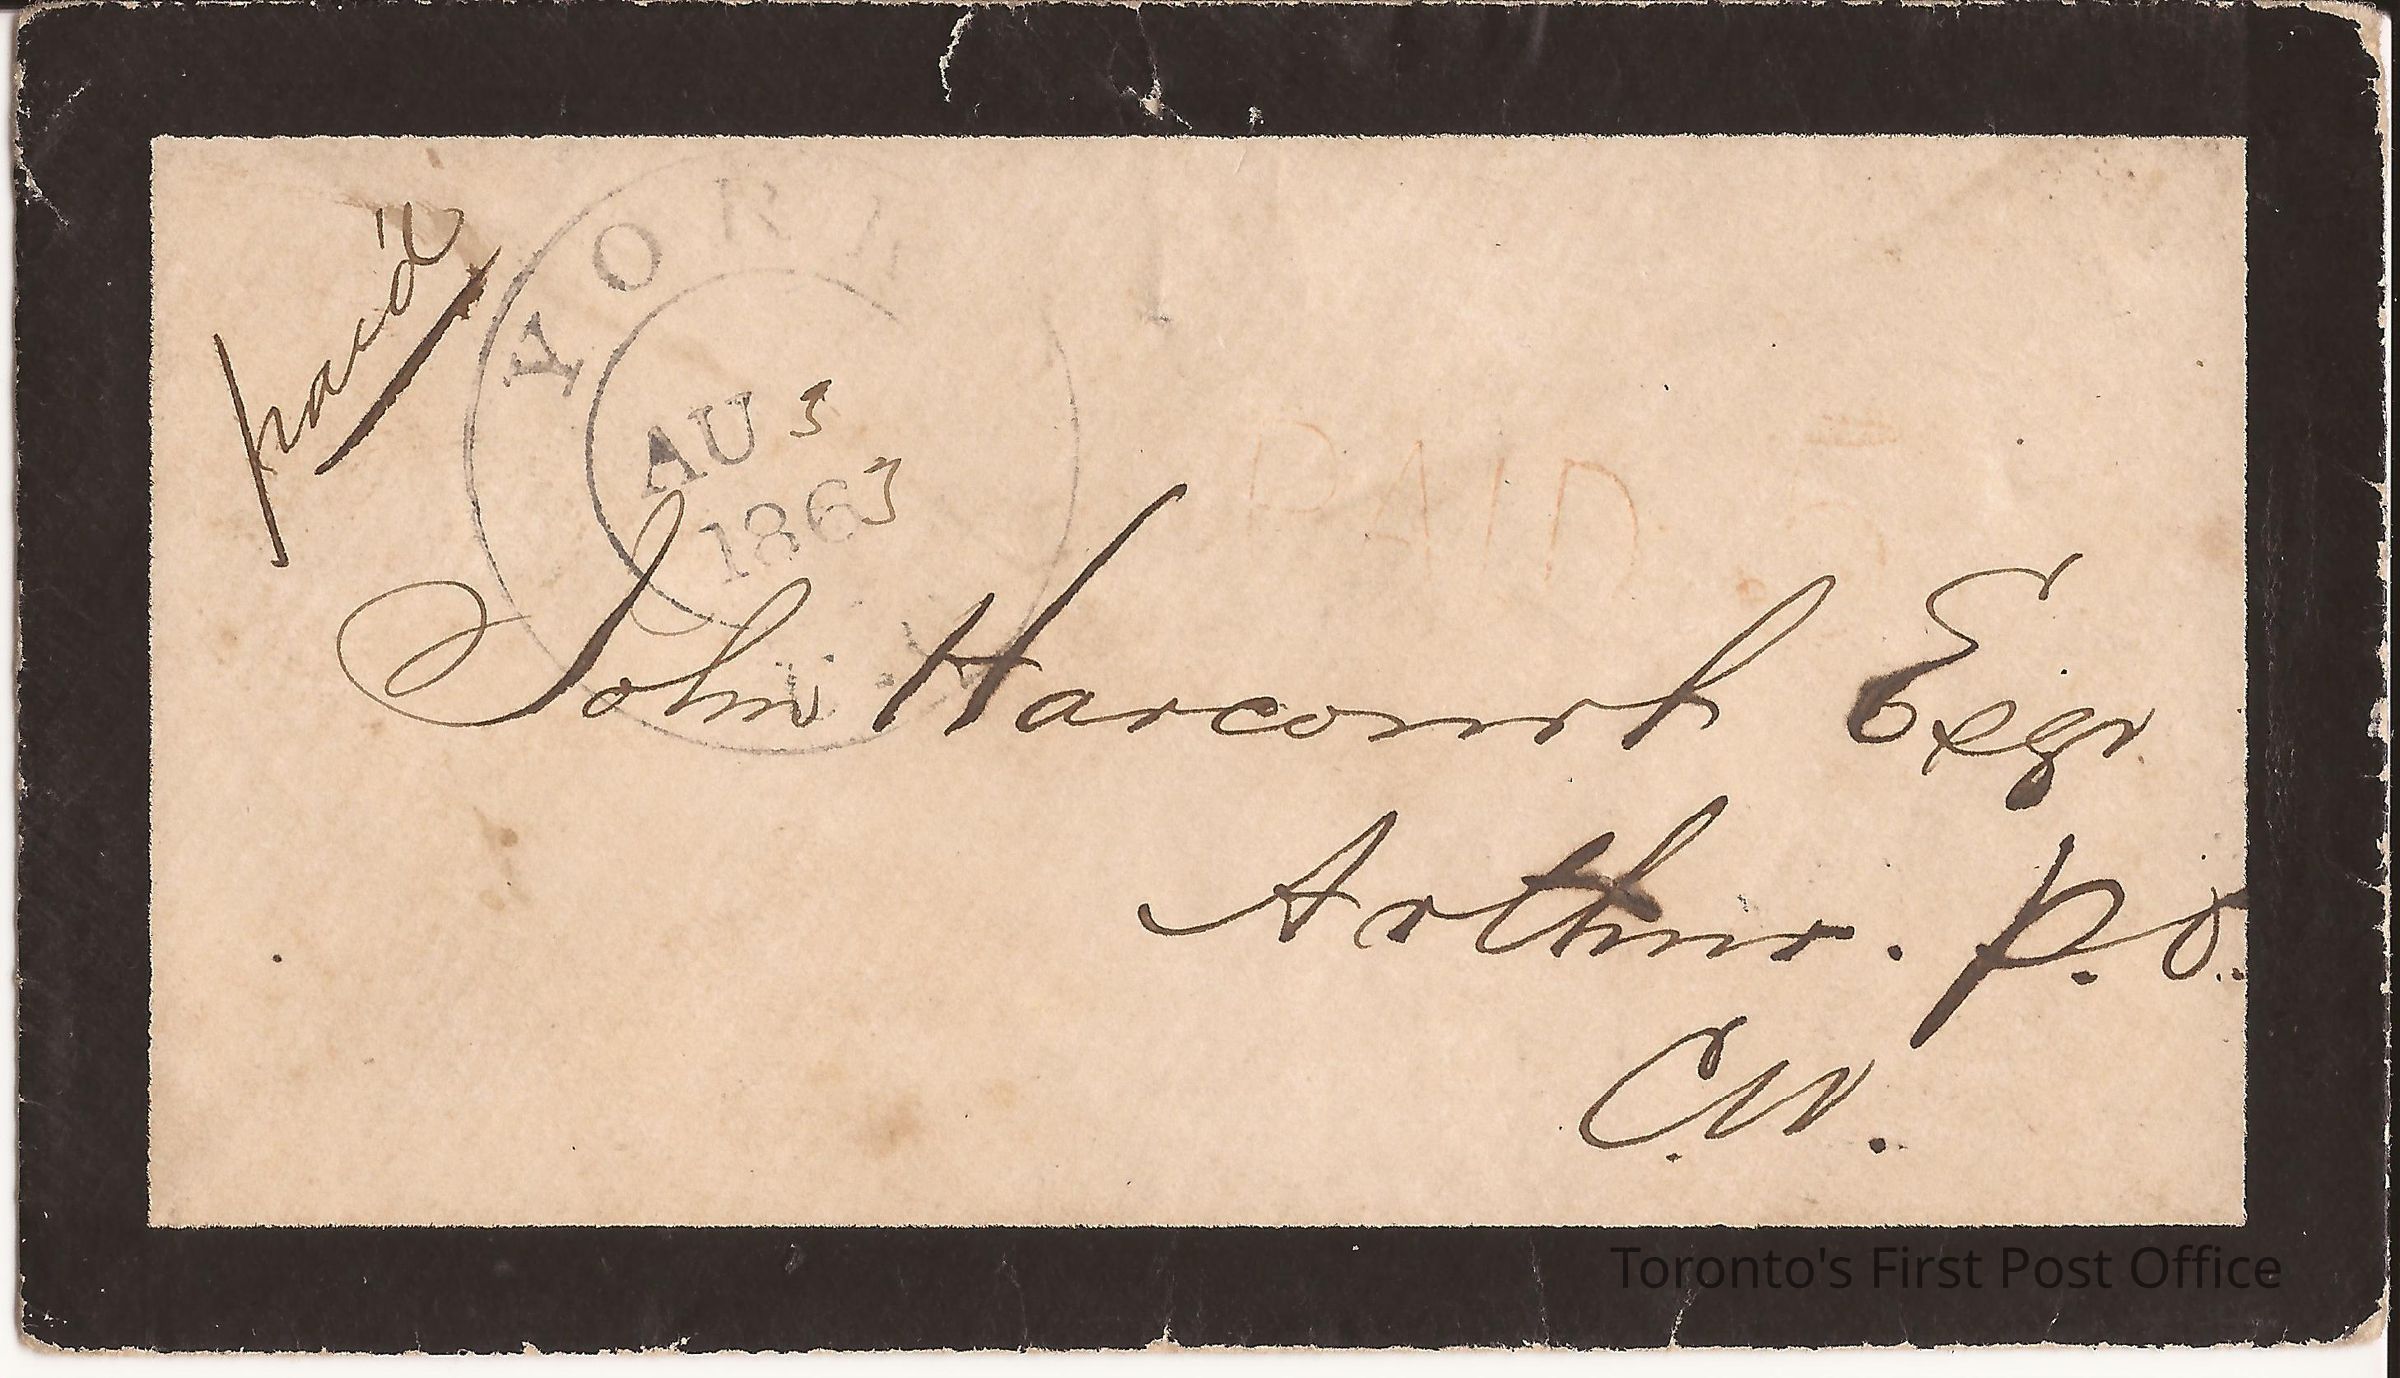 paid
YORK
AU 3
1863
PAID 5
John Harcourt Esqr.
Arthur. P.O.
C.W.
Toronto's First Post Office